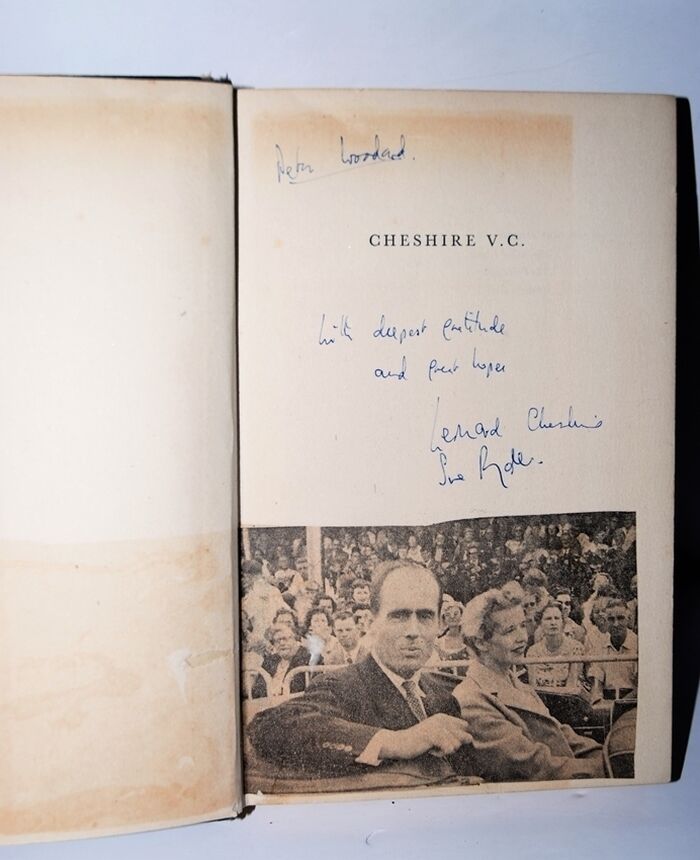 Peter Woodard.
CHESHIRE V.C.
With deepest gratitude
and great hopes
Leonard Cheshire
Sue Ryder.